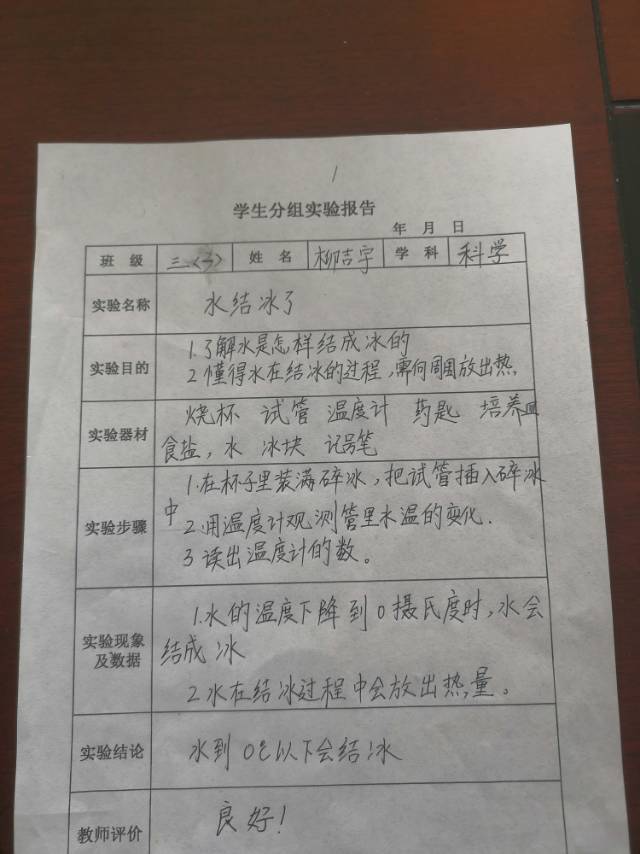 1
学生分组实验报告
年 月 日
班 级 三〈3〉 姓 名 柳吉宇 学 科 科学
实验名称 水结冰了
实验目的 1.了解水是怎样结成冰的
2 懂得水在结冰的过程,需向周围放出热,
实验器材 烧杯 试管 温度计 药匙 培养皿
食盐,水 冰块 记号笔
实验步骤 1.在杯子里装满碎冰,把试管插入碎冰
中 2.用温度计观测管里水温的变化.
3 读出温度计的数。
实验现象及数据 1.水的温度下降到0摄氏度时,水会
结成冰
2 水在结冰过程中会放出热量。
实验结论 水到0℃以下会结冰
教师评价 良好!